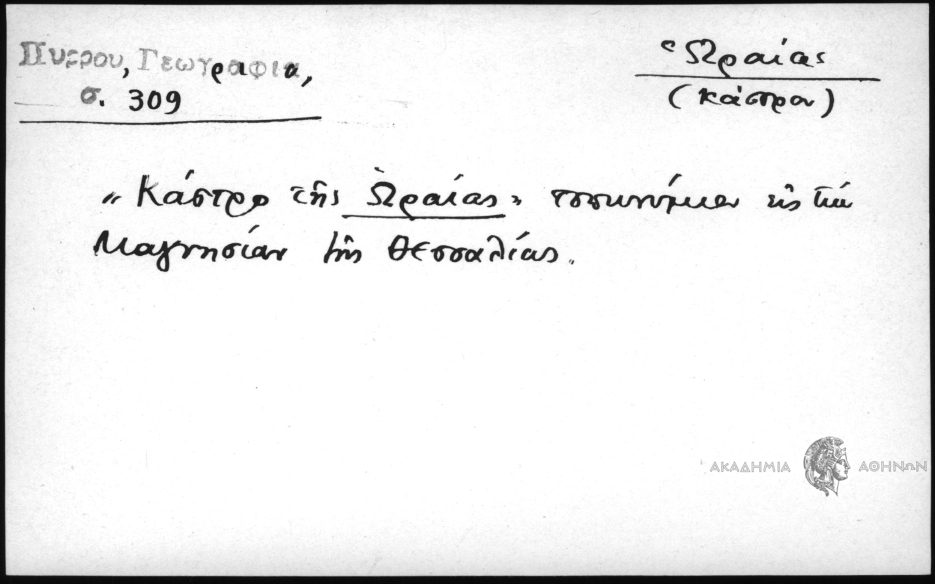 Πυρρου, Γεωγραφια,
σ. 309
Ὡραίας
(κάστρον)
"Κάστρο τῆς Ὡραίας" τοπωνύμιον εἰς τὴν
Μαγνησίαν τῆς Θεσσαλίας.
ΑΚΑΔΗΜΙΑ ΑΘΗΝΩΝ